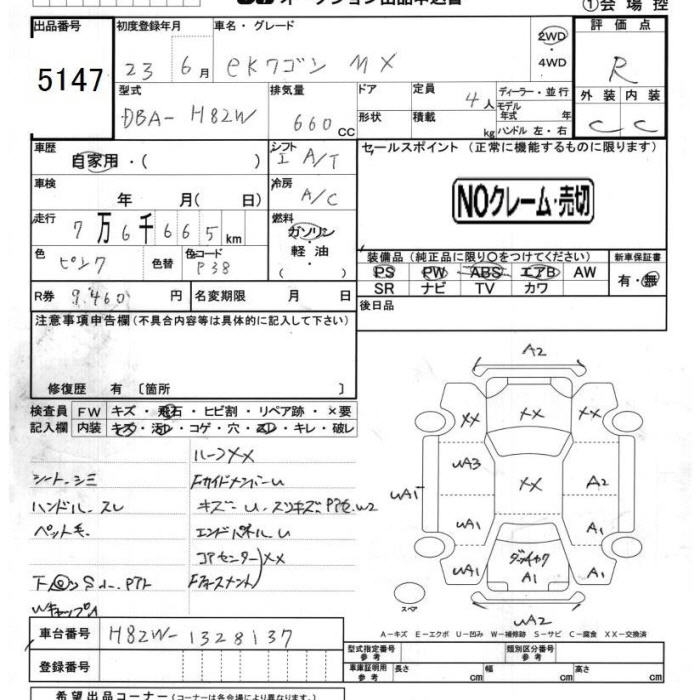 ①会場控
出品番号 5147
初度登録年月 23 6月
車名・グレード eKワゴン MX
2WD・4WD
評価点 R
外装 C 内装 C
型式 DBA-H82W
排気量 660CC
ドア 形状
定員 4人
積載 kg
ディーラー・並行
モデル年式 年
ハンドル 左・右
車歴 自家用・( )
シフト I A/T
車検 年 月( 日)
冷房 A/C
走行 7万6千665km
燃料 ガソリン・軽油・( )
色 ピンク 色替 色コード P38
R券 9,460円
名変期限 月 日
セールスポイント(正常に機能するものに限ります)
NOクレーム・売切
装備品(純正品に限り○をつけてください)
PS PW ABS エアB AW
SR ナビ TV カワ
新車保証書 有・無
後日品
注意事項申告欄(不具合内容等は具体的に記入して下さい)
修復歴 有〔箇所 〕
検査員記入欄
FW キズ・飛石・ヒビ割・リペア跡・×要
内装 キズ・汚れ・コゲ・穴・スレ・キレ・破レ
ルーフXX
シート シミ
Fサイドメンバー U
ハンドル スレ
ペット毛
エンドパネル U
コアセンター XX
Wキャップ
A2
XX XX XX
UA3 XX A2
UA1 UA1 A1
UA1 A1 A1
UA2
スペア
A-キズ E-エクボ U-凹み W-補修跡 S-サビ C-腐食 XX-交換済
車台番号 H82W-1328137
登録番号
型式指定番号 参考
類別区分番号 参考
車庫証明用 参考 長さ cm 幅 cm 高さ cm
希望出品コーナー(コーナーは各会場により異なります)